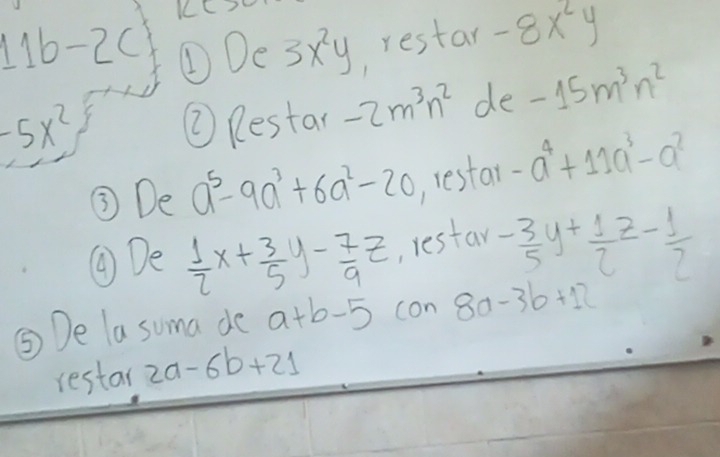 11b-2c}
-5x²}
① De 3x²y, restar -8x²y
② Restar -2m³n² de -15m³n²
③ De a⁵-9a³+6a²-20, restar -a⁴+11a³-a²
④ De 1/2x+3/5y-7/9z, restar -3/5y+1/2z-1/2
⑤ De la suma de a+b-5 con 8a-3b+12
restar 2a-6b+21